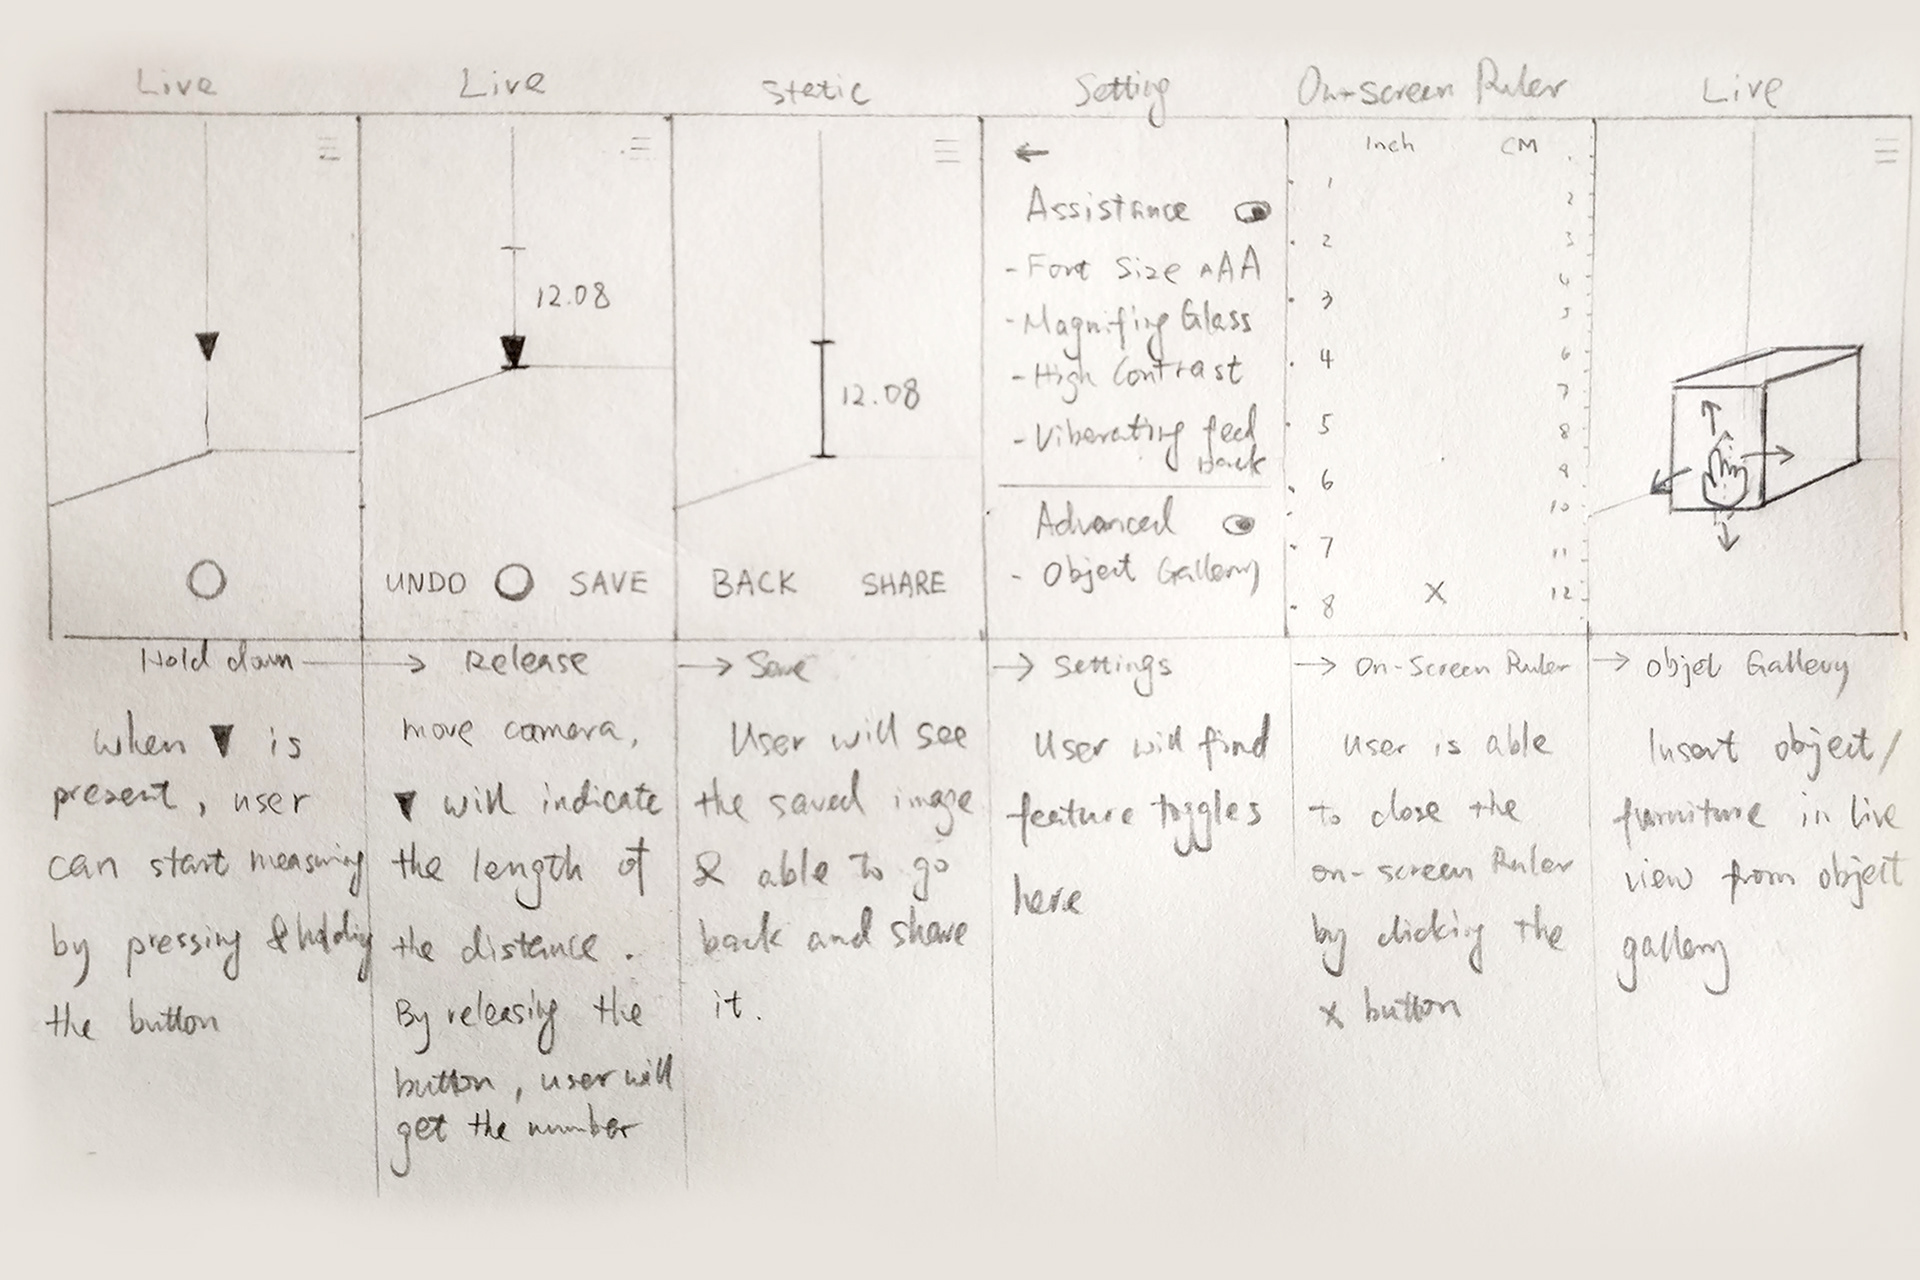 Live
Live
Static
Setting
On-screen Ruler
Live
12.08
UNDO
SAVE
12.08
BACK
SHARE
←
Assistance
- Font Size AAA
- Magnifing Glass
- High Contrast
- Viberating feed
back
Advanced
- Object Gallery
Inch
CM
1
2
3
4
5
6
7
8
2
3
4
5
6
7
8
9
10
11
12
X
Hold down
→ Release
→ Save
→ Settings
→ On-Screen Ruler
→ Objet Gallery
when ▼ is
present, user
can start measuring
by pressing & holding
the button
move camera,
▼ will indicate
the length of
the distance.
By releasing the
button, user will
get the number
User will see
the saved image
& able to go
back and share
it.
User will find
feature toggles
here
User is able
to close the
on-screen Ruler
by clicking the
x button
Insert object/
furniture in live
view from object
gallery